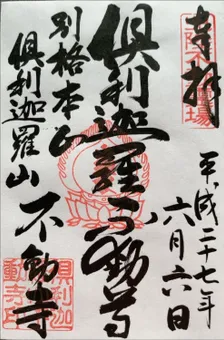 奉拝
平成二十七年
六月六日
倶利迦羅不動尊
別格本山
倶利迦羅山
不動寺
倶利迦羅山
不動寺印